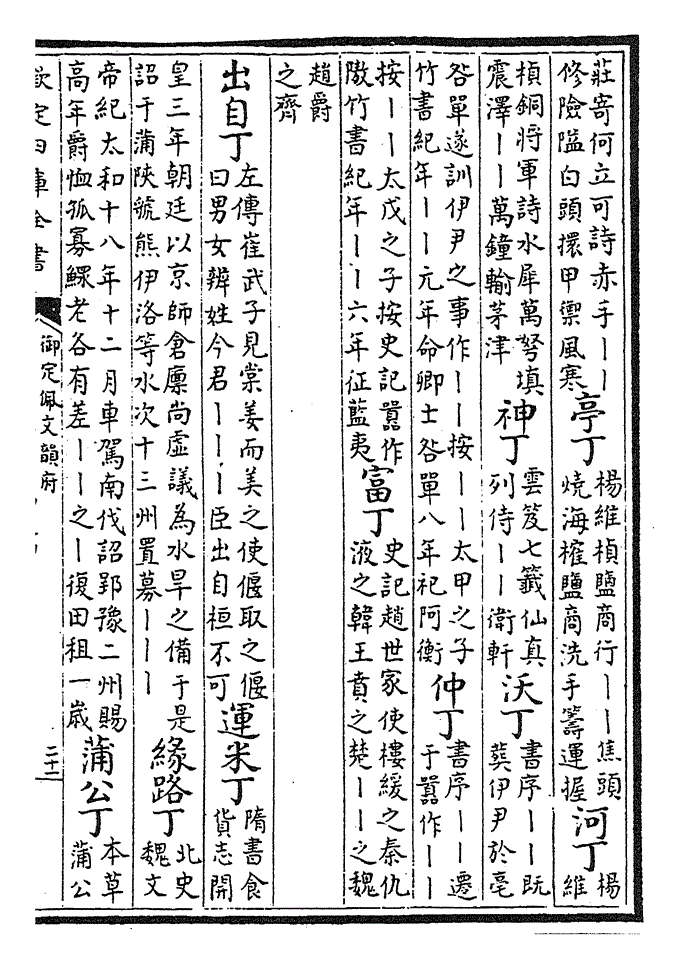 莊寄何立可詩赤手丨丨
修險隘白頭擐甲禦風寒
亭丁
楊維楨鹽商行丨丨焦頭
燒海榷鹽商洗手籌運握
河丁
楊維
楨銅將軍詩水犀萬弩填
震澤丨丨萬鐘輸茅津
神丁
雲笈七籤仙真
列侍丨丨衛軒
沃丁
書序丨丨既
葬伊尹於亳
咎單遂訓伊尹之事作丨丨按丨丨太甲之子
竹書紀年丨丨元年命卿士咎單八年祀阿衡
仲丁
書序丨丨遷
于囂作丨丨
按丨丨太戊之子按史記囂作
隞竹書紀年丨丨六年征藍夷
富丁
史記趙世家使樓緩之秦仇
液之韓王賁之楚丨丨之魏
趙爵
之齊
出自丁
左傳崔武子見棠姜而美之使偃取之偃
曰男女辨姓今君丨丨丨臣出自桓不可
運米丁
隋書食
貨志開
皇三年朝廷以京師倉廩尚虛議為水旱之備于是
詔于蒲陝虢熊伊洛等水次十三州置募丨丨丨
緣路丁
北史
魏文
帝紀太和十八年十二月車駕南伐詔郢豫二州賜
高年爵恤孤寡鰥老各有差丨丨之丨復田租一歲
蒲公丁
本草
蒲公
欽定四庫全書
御定佩文韻府
二十二